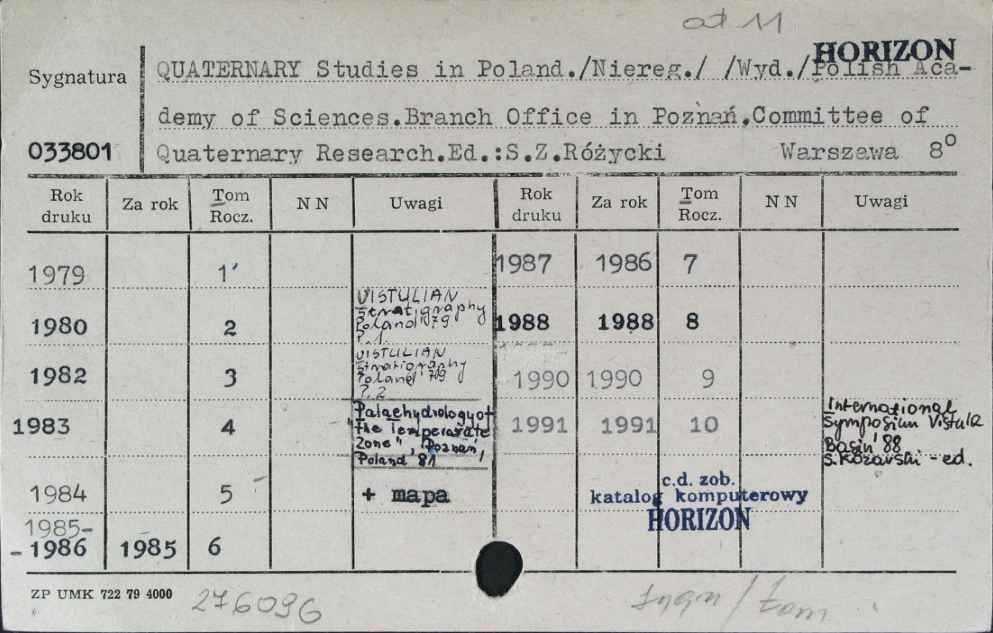 od 11
HORIZON
Sygnatura
QUATERNARY Studies in Poland./Niereg./ /Wyd./Polish Aca-
demy of Sciences.Branch Office in Poznań.Committee of
033801 Quaternary Research.Ed.:S.Z.Różycki Warszawa 8°
Rok druku Za rok Tom Rocz. N N Uwagi Rok druku Za rok Tom Rocz. N N Uwagi
1979 1 1987 1986 7
1980 2 VISTULIAN Stratigraphy Poland'79 P.1. 1988 1988 8
1982 3 VISTULIAN Stratigraphy Poland'79 P.2 1990 1990 9
1983 4 Palaehydrology of the Temperarate Zone" Poznań, Poland '81 1991 1991 10 International Symposium Vistula Basin '88 S.Kozarski - ed.
1984 5 + mapa
c.d. zob.
katalog komputerowy
HORIZON
1985-
-1986 1985 6
ZP UMK 722 79 4000
276096